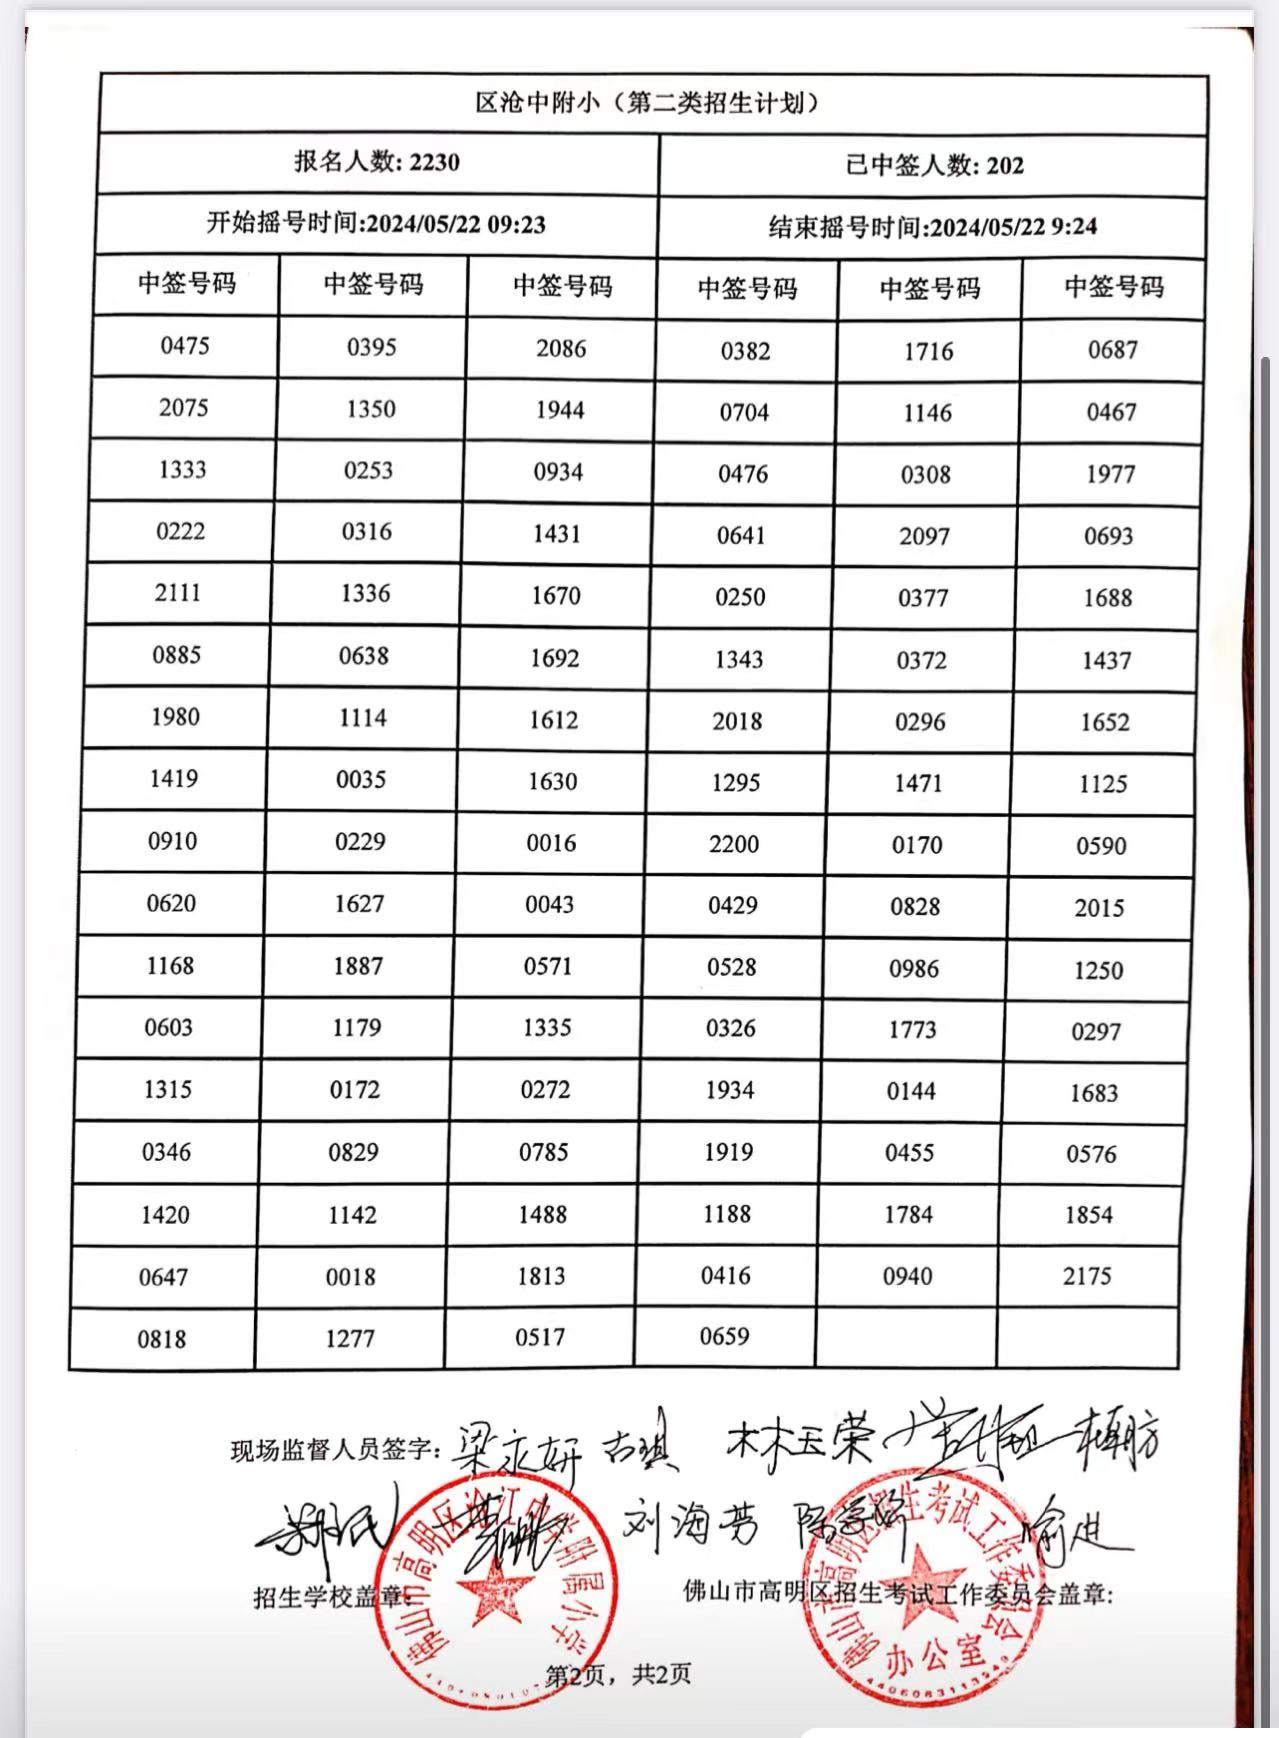 区沧中附小（第二类招生计划）
报名人数: 2230 已中签人数: 202
开始摇号时间:2024/05/22 09:23 结束摇号时间:2024/05/22 9:24
中签号码 中签号码 中签号码 中签号码 中签号码 中签号码
0475 0395 2086 0382 1716 0687
2075 1350 1944 0704 1146 0467
1333 0253 0934 0476 0308 1977
0222 0316 1431 0641 2097 0693
2111 1336 1670 0250 0377 1688
0885 0638 1692 1343 0372 1437
1980 1114 1612 2018 0296 1652
1419 0035 1630 1295 1471 1125
0910 0229 0016 2200 0170 0590
0620 1627 0043 0429 0828 2015
1168 1887 0571 0528 0986 1250
0603 1179 1335 0326 1773 0297
1315 0172 0272 1934 0144 1683
0346 0829 0785 1919 0455 0576
1420 1142 1488 1188 1784 1854
0647 0018 1813 0416 0940 2175
0818 1277 0517 0659
现场监督人员签字: 梁永妍 古琪 林玉荣
刘海芳
招生学校盖章: 佛山市高明区招生考试工作委员会盖章:
佛山市高明区沧江中学附属小学
佛山市高明区招生考试工作委员会
办公室
第2页，共2页